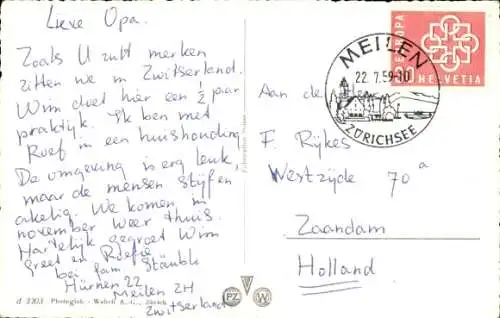 Lieve Opa.
Zoals U zult merken
zitten we in Zwitserland.
Wim doet hier een ½ jaar
praktijk. Ik ben met
Roef in een huishouding
De omgeving is erg leuk,
maar de mensen stijf en
akelig. We komen in
november weer thuis.
Hartelijk gegroet Wim
Greet en Roefie
bei fam Stäubli
Hürnen 22
Meilen ZH
Zwitserland
d 3203 Photoglob - Wehrli A.-G., Zürich
PZ W
MEILEN
22.7.59-10
ZÜRICHSEE
EUROPA
HELVETIA
Aan de
F. Rijkes
Westzijde 70a
Zaandam
Holland